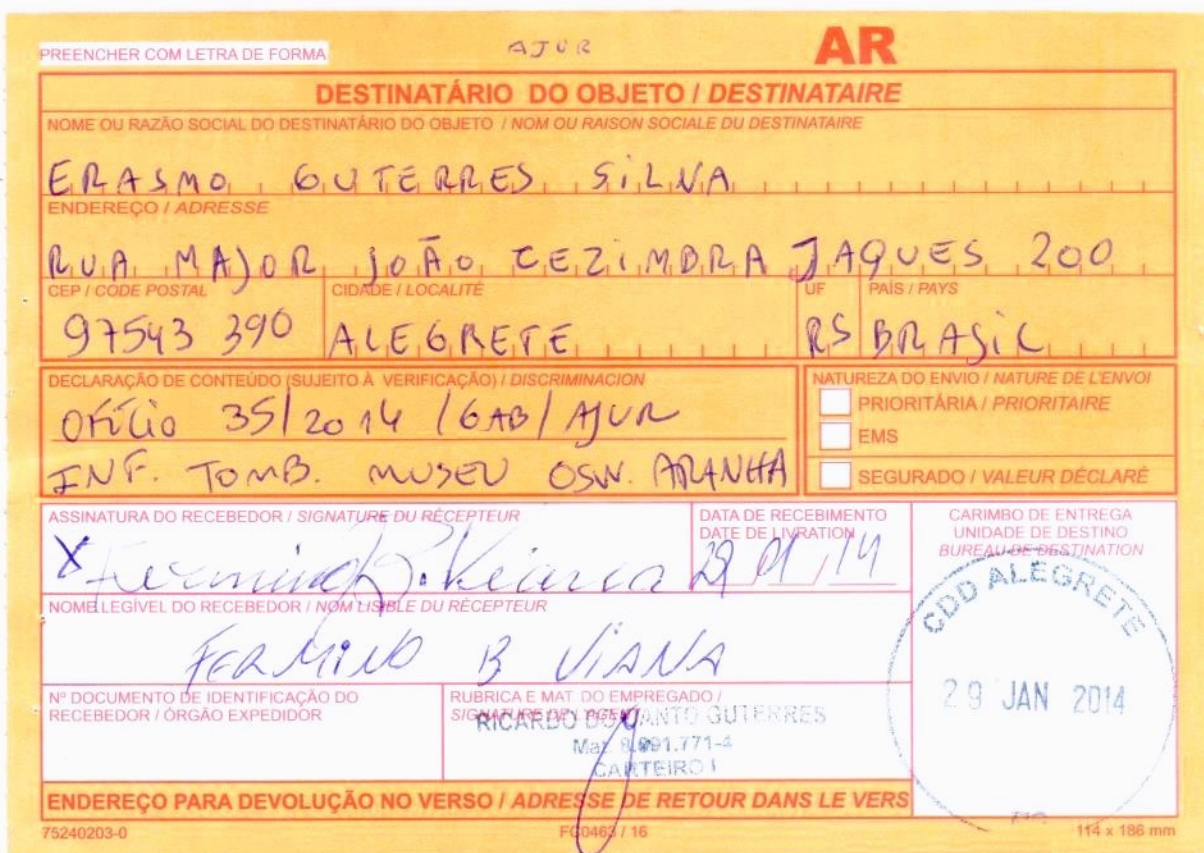 AJUR
AR
PREENCHER COM LETRA DE FORMA
DESTINATÁRIO DO OBJETO / DESTINATAIRE
NOME OU RAZÃO SOCIAL DO DESTINATÁRIO DO OBJETO / NOM OU RAISON SOCIALE DU DESTINATAIRE
ERASMO GUTERRES SILVA
ENDEREÇO / ADRESSE
RUA MAJOR JOÃO CEZIMBRA JAQUES 200
CEP / CODE POSTAL CIDADE / LOCALITÉ UF PAÍS / PAYS
97543 390 ALEGRETE RS BRASIL
DECLARAÇÃO DE CONTEÚDO (SUJEITO À VERIFICAÇÃO) / DISCRIMINACION
OFÍCIO 35/2014 /GAB/AJUR
INF. TOMB. MUSEU OSW. ARANHA
NATUREZA DO ENVIO / NATURE DE L'ENVOI
PRIORITÁRIA / PRIORITAIRE
EMS
SEGURADO / VALEUR DÉCLARÉ
ASSINATURA DO RECEBEDOR / SIGNATURE DU RÉCEPTEUR
X Fermino B. Viana
DATA DE RECEBIMENTO
DATE DE LIVRATION
29 01 14
CARIMBO DE ENTREGA
UNIDADE DE DESTINO
BUREAU DE DESTINATION
CDD ALEGRETE
29 JAN 2014
NOME LEGÍVEL DO RECEBEDOR / NOM LISIBLE DU RÉCEPTEUR
FERMINO B VIANA
Nº DOCUMENTO DE IDENTIFICAÇÃO DO
RECEBEDOR / ÓRGÃO EXPEDIDOR
RUBRICA E MAT. DO EMPREGADO /
SIGNATURE DE L'AGENT
RICARDO DO CANTO GUTERRES
Mat. 8.991.771-4
CARTEIRO I
ENDEREÇO PARA DEVOLUÇÃO NO VERSO / ADRESSE DE RETOUR DANS LE VERS
75240203-0 FC0463 / 16 114 x 186 mm